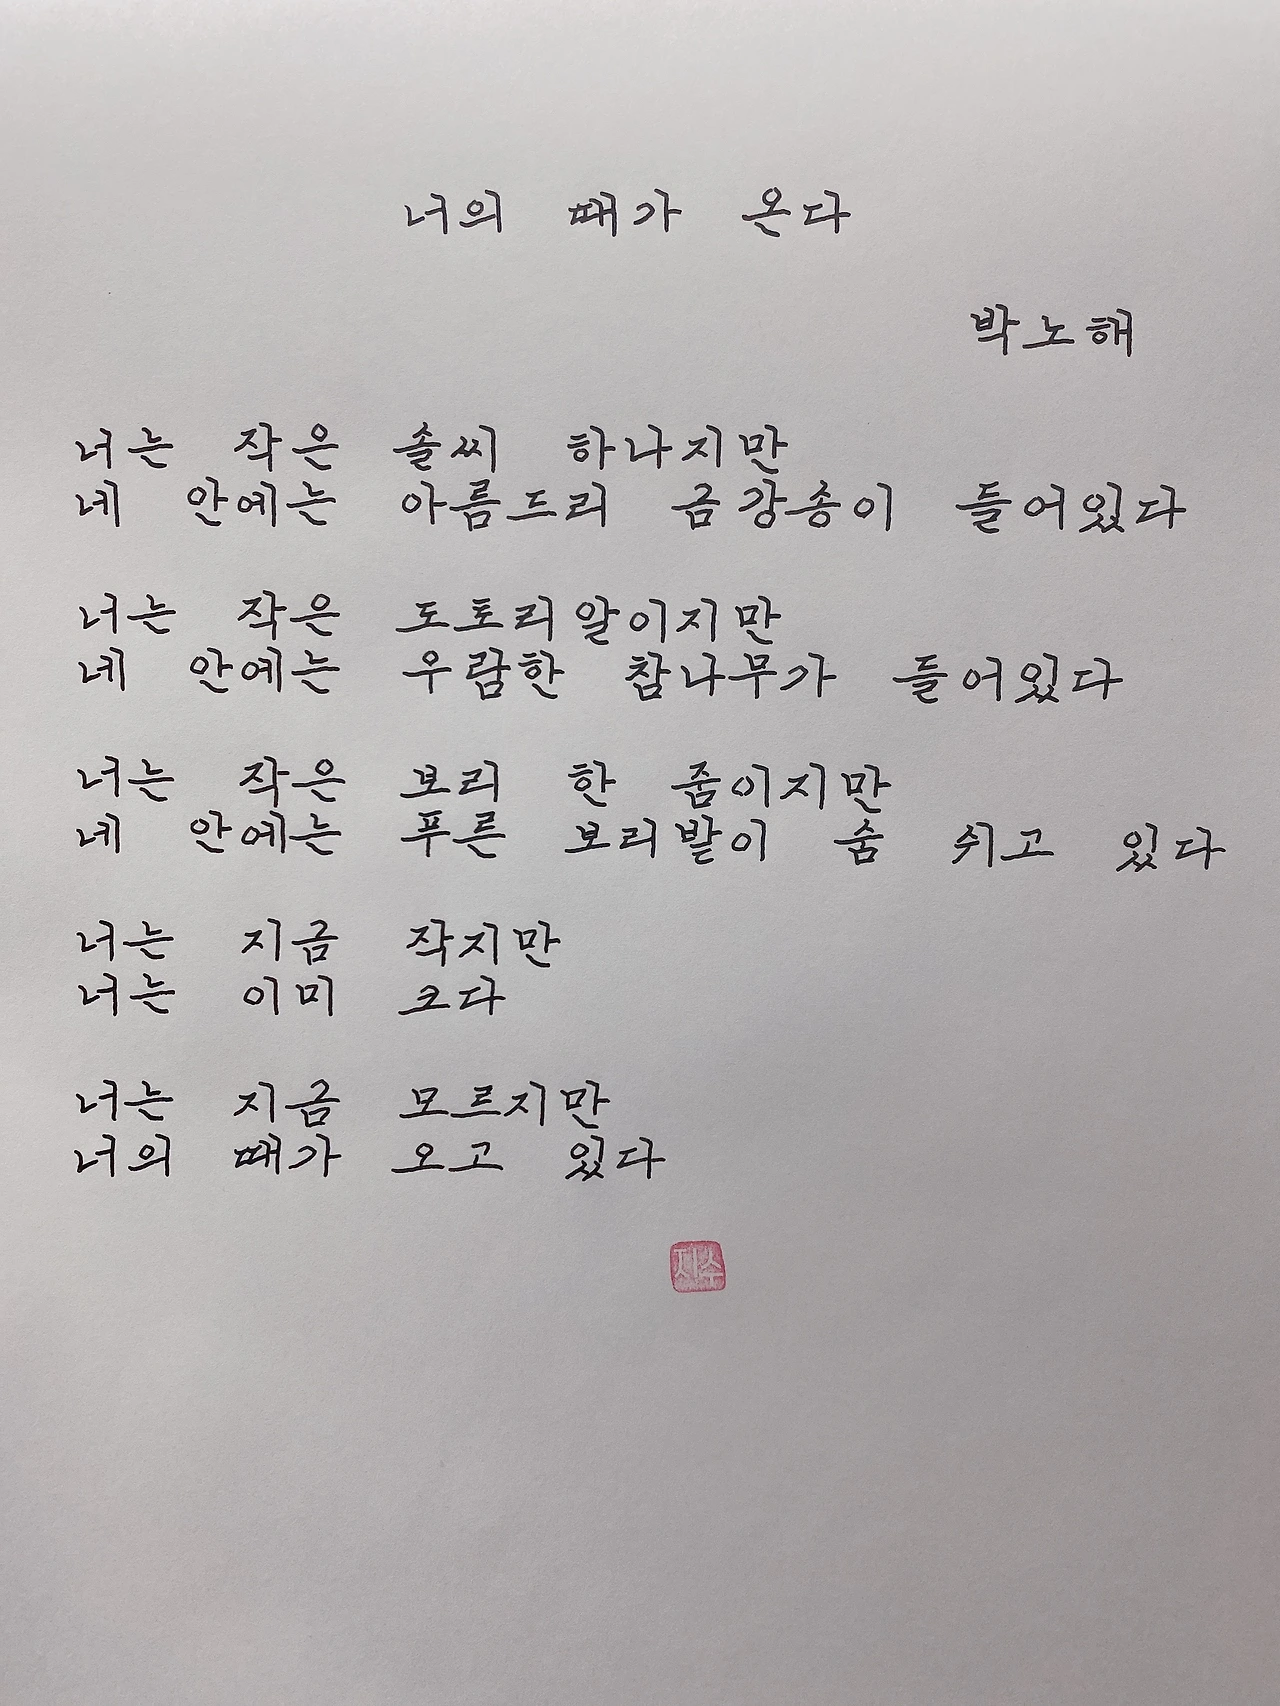 너의 때가 온다
박노해
너는 작은 솔씨 하나지만
네 안에는 아름드리 금강송이 들어있다
너는 작은 도토리알이지만
네 안에는 우람한 참나무가 들어있다
너는 작은 보리 한 줌이지만
네 안에는 푸른 보리밭이 숨 쉬고 있다
너는 지금 작지만
너는 이미 크다
너는 지금 모르지만
너의 때가 오고 있다
지수